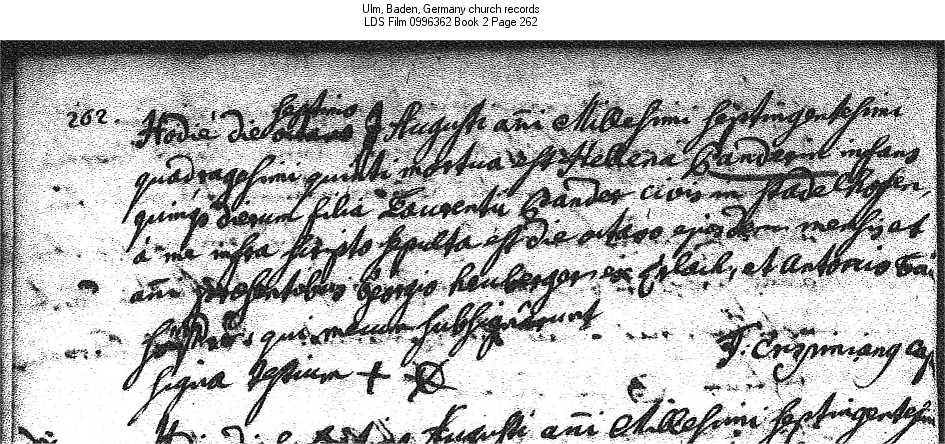 Ulm, Baden, Germany church records
LDS Film 0996362 Book 2 Page 262
262. Hodie die septimo Augusti añi Millesimi septingentesimi
quadragesimi quinti mortua est Hellena Banderin infans
dierum filia Laurentii Bander civis in stadelhofen,
á me infra scripto sepulta est die octavo ejusdem mensis et
añi praesentibus Georgio heuberger ex Erlach, et Antonio
qui mecum subsignârunt
signa testium + 
Augusti añi Millesimi septingentesimi